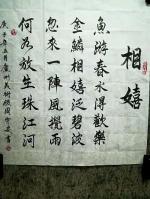 相嬉
魚游春水得歡樂
金鱗相嬉泛碧波
忽來一陣風攪雨
何為放生珠江河